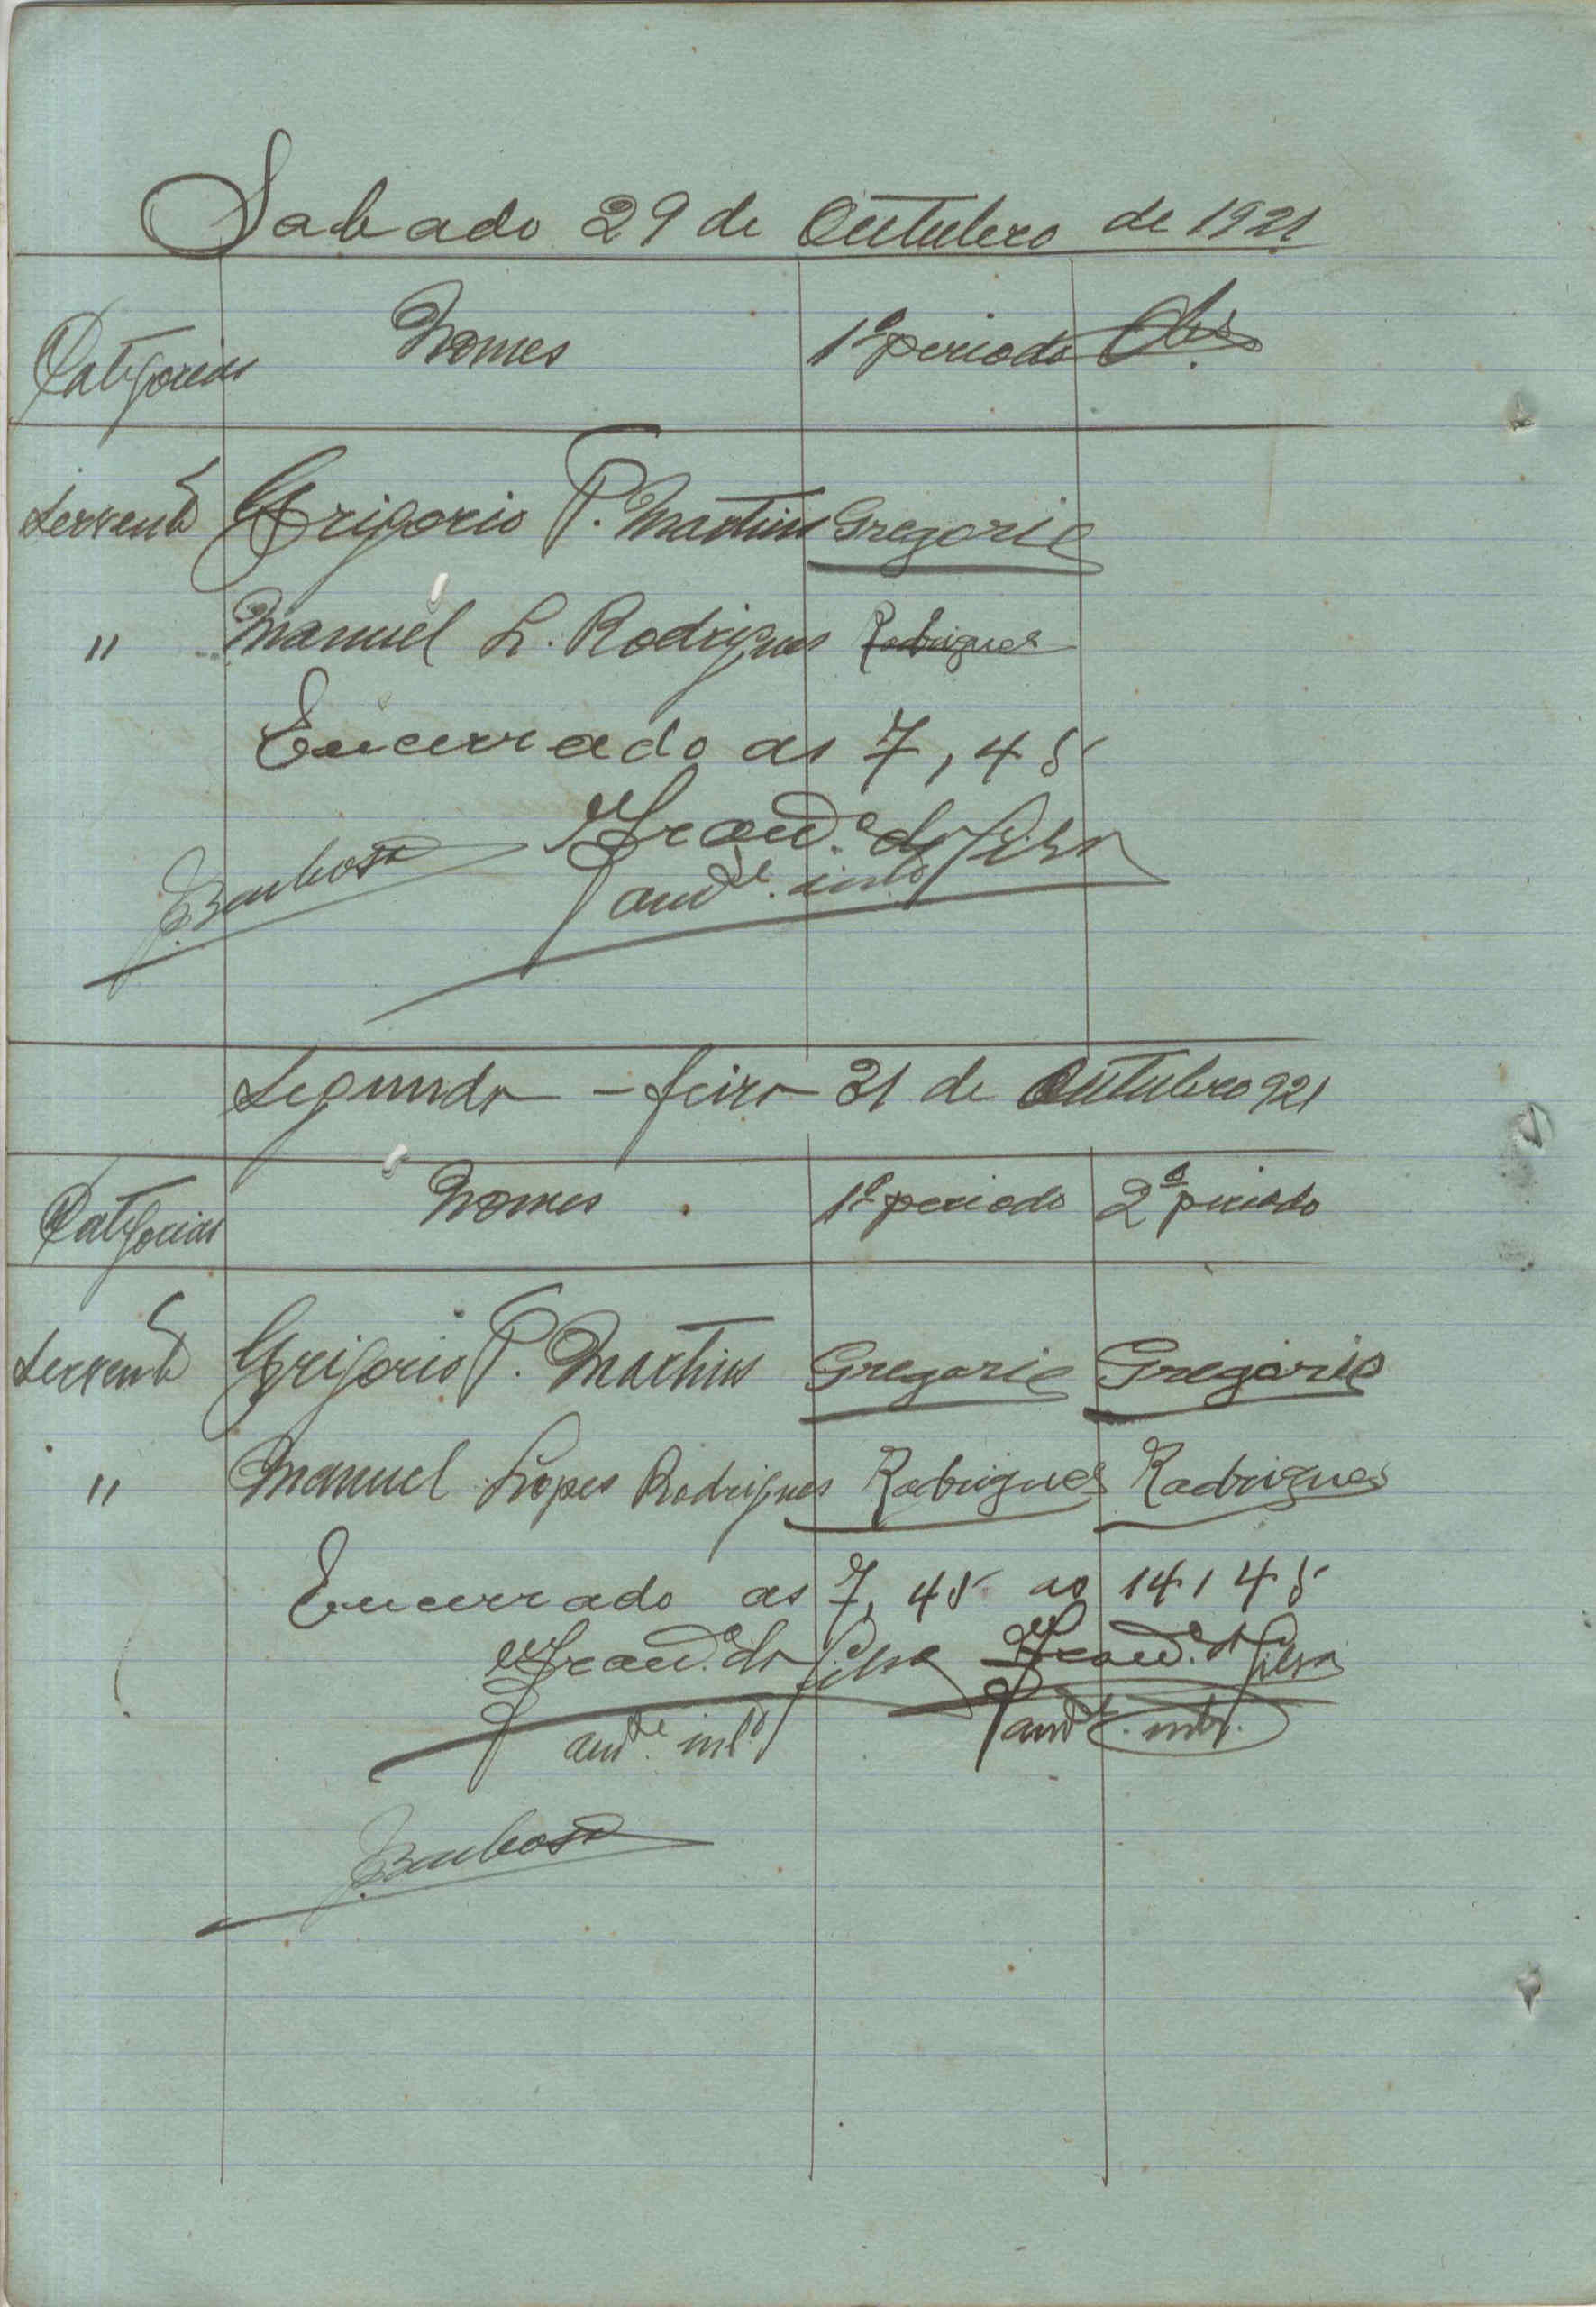 Sabado 29 de Outubro de 1921
Categorias Nomes 1º periodo Obs.
Servente Grigorio P. Martins Gregorio
" Manuel L. Rodrigues Rodrigues
Encerrado as 7,45
da Silva
Barbosa
Segunda-feira 31 de Outubro 921
Categorias Nomes 1º periodo 2º periodo
Servente Grigorio P. Martins Gregorio Gregorio
" Manuel Lopes Rodrigues Rodrigues Rodrigues
Encerrado as 7,45 as 14,45
da Silva da Silva
Barbosa